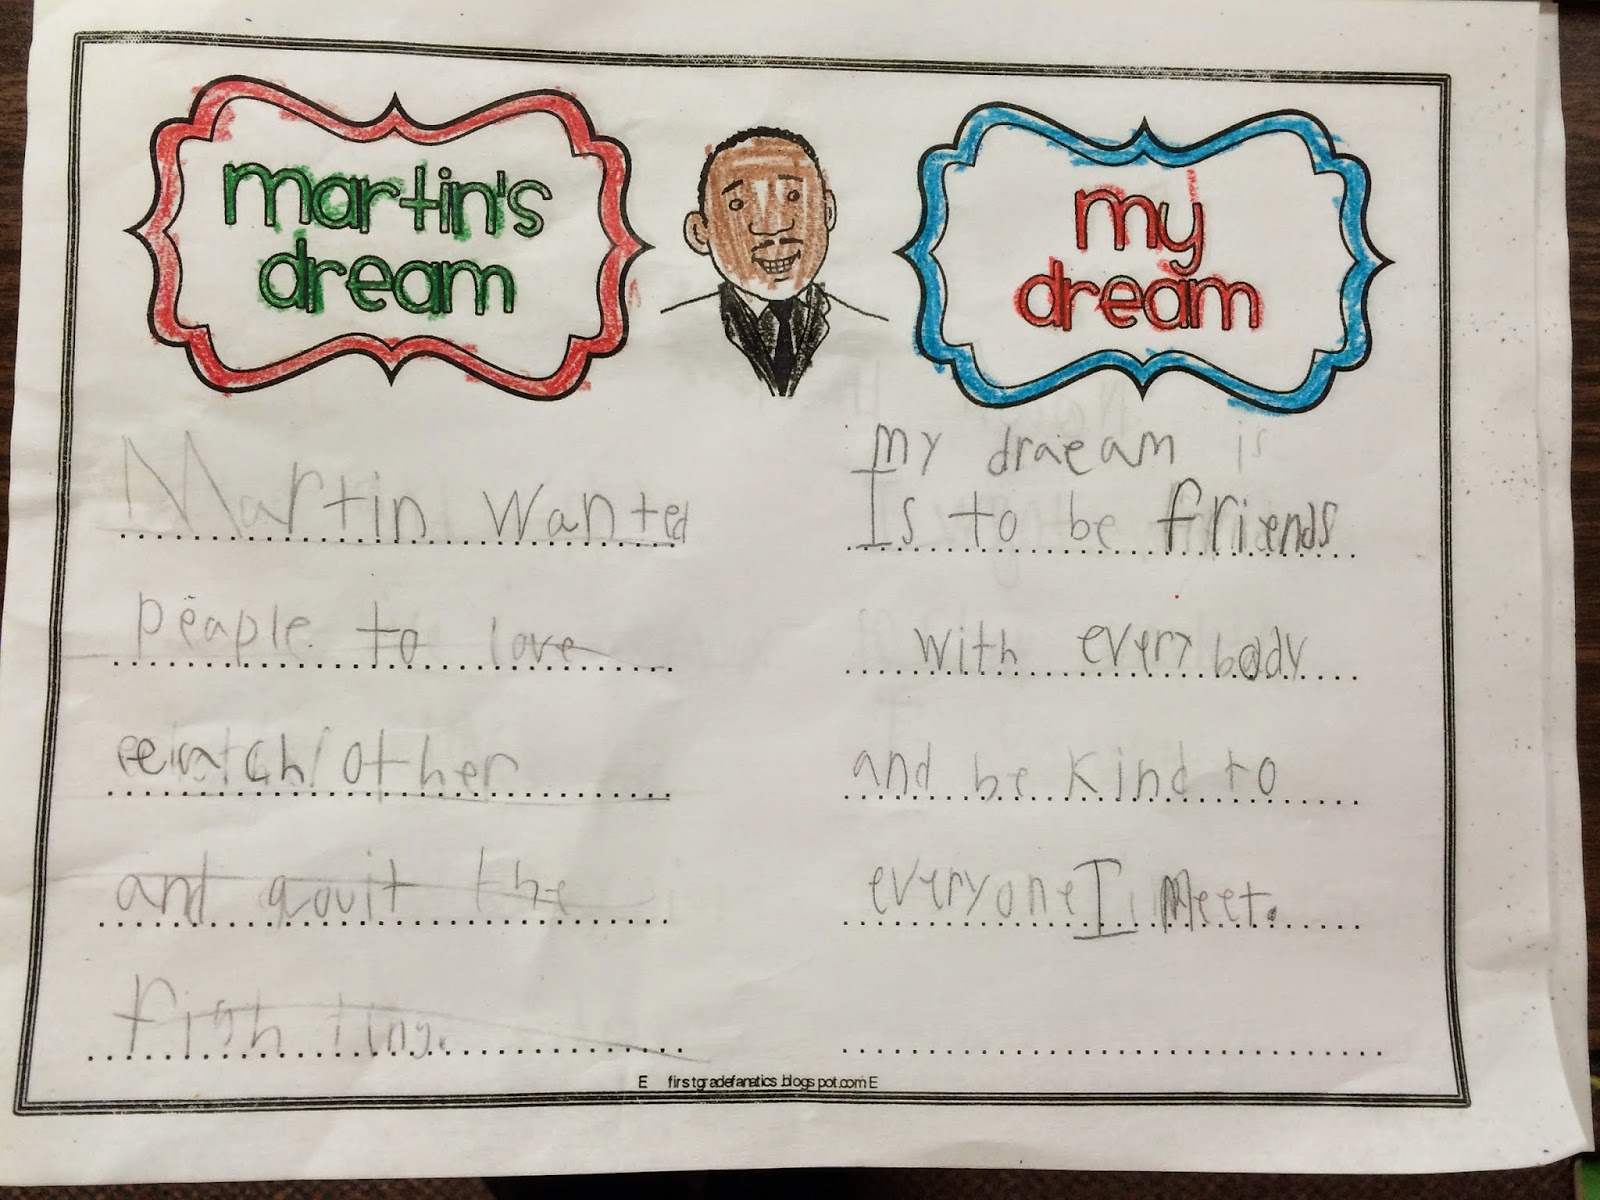 martin's
dream
my
dream
Martin wanted
peaple to love
each other
and qouit the
fighting.
my draeam is
Is to be friends
with everybody
and be kind to
everyone I meet.
E firstgradefanatics.blogspot.com E